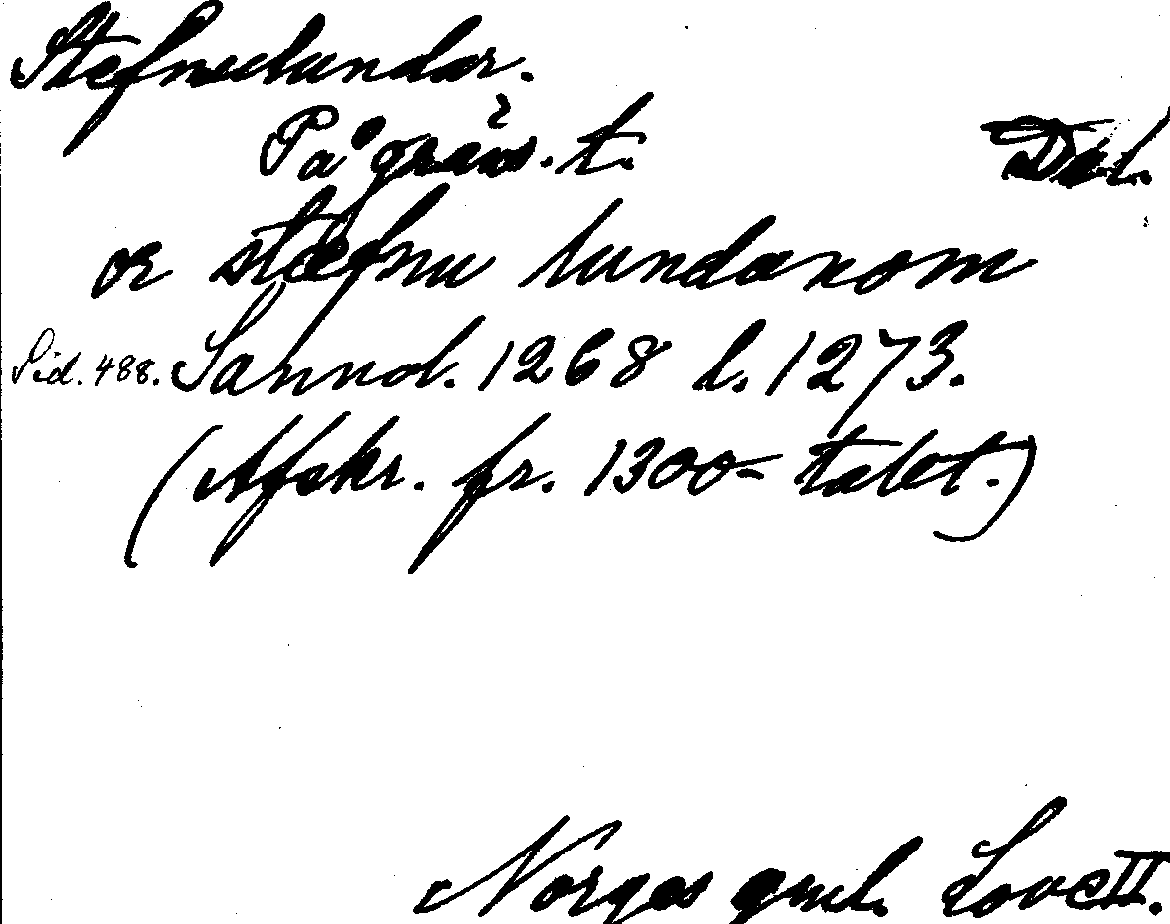 Stefnulundar.
På gräns. t. Dal.
or stæfnu lundanom
Sid. 488. Sannol. 1268 l. 1273.
(Afskr. fr. 1300-talet.)
Norges gml. Love II.